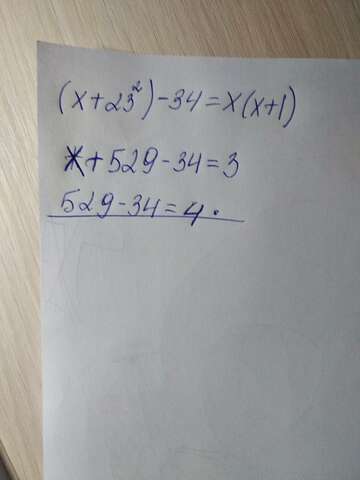 (x+23²)-34=x(x+1)
x+529-34=3
529-34=4.